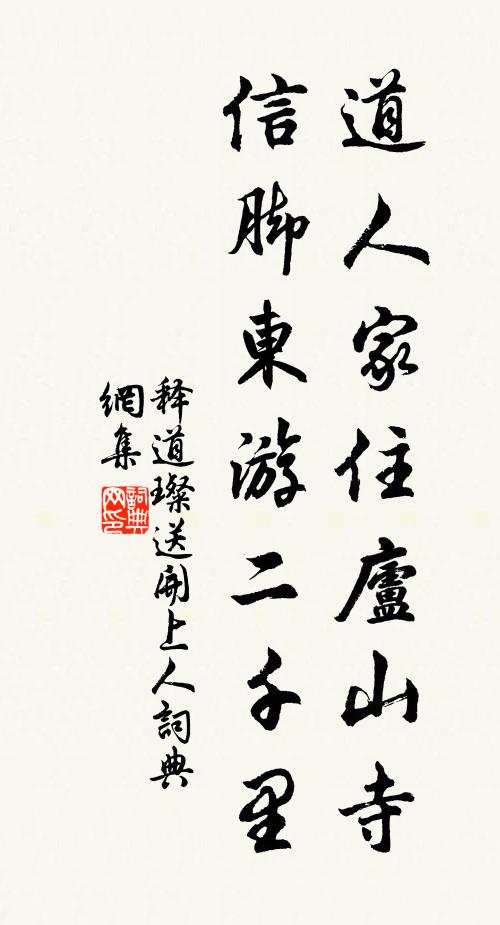 道人家住廬山寺
信脚東游二千里
释道璨送開上人詞典
網集
詞典
网印